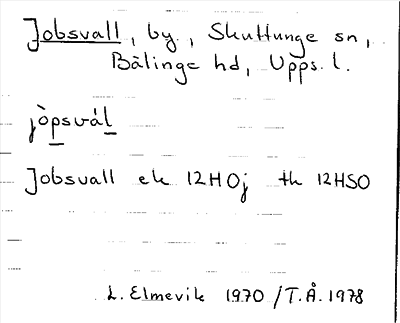 Jobsvall, by, Skuttunge sn,
Bälinge hd, Upps. l.
jòpsvál
Jobsvall ek 12HOj th 12HSO
L. Elmevik 1970 / T.Å. 1978